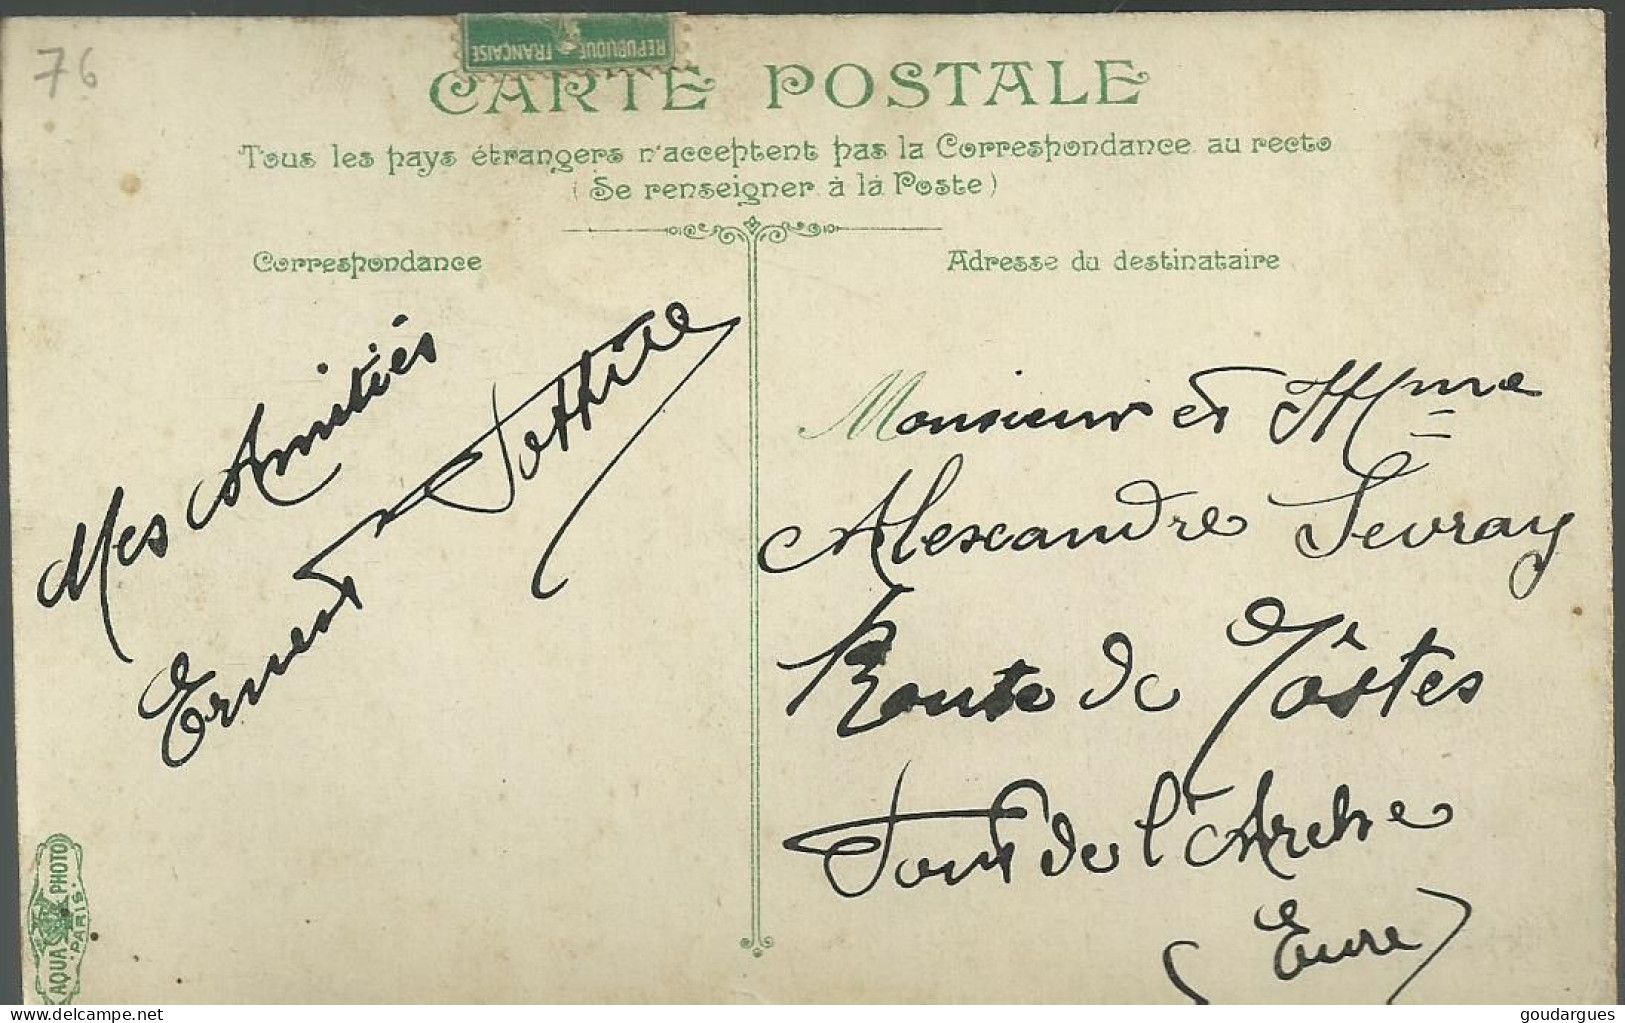 76
REPUBLIQUE FRANÇAISE
CARTE POSTALE
Tous les pays étrangers n'acceptent pas la Correspondance au recto
(Se renseigner à la Poste)
Correspondance
Adresse du destinataire
Mes Amitiés
Ernest
Monsieur et Mme
Alexandre Sevray
Route de Tôstes
Pont de l'Arche
(Eure)
AQUA PHOTO
PARIS
www.delcampe.net
goudargues